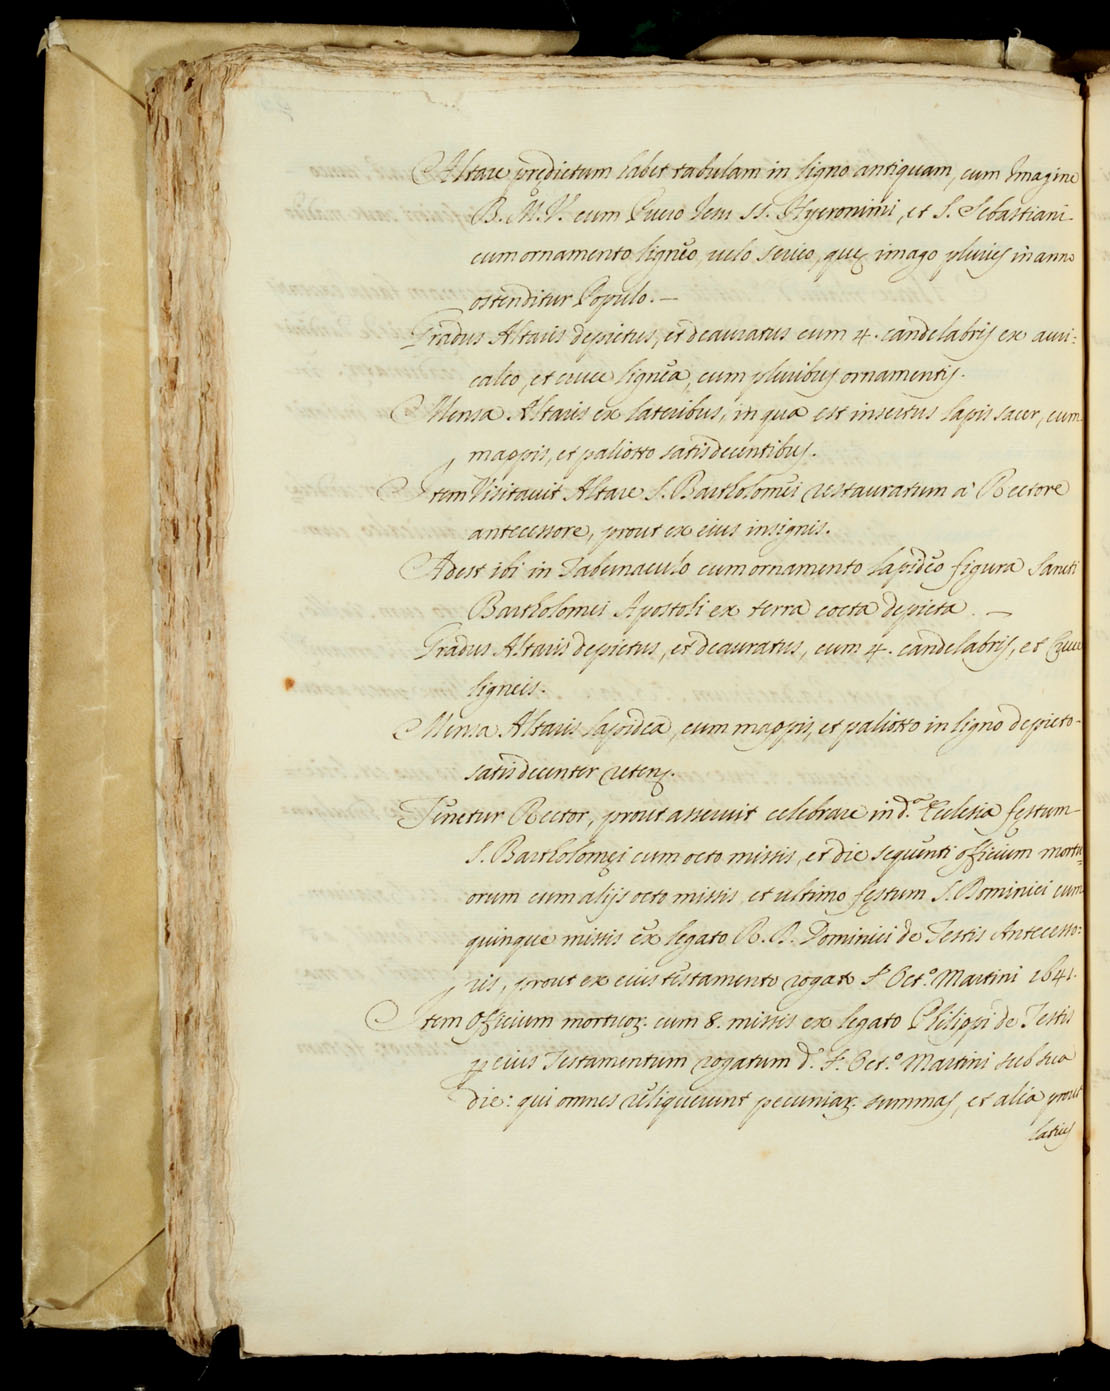 Altare prędictum habet tabulam in ligno antiquam, cum Imagine
B. M. V. cum Puero Iesu SS. Hyeronimi, et S. Sebastiani
cum ornamento ligneo, velo serico, quę imago pluries in anno
ostenditur Populo. —
Gradus Altaris depictus, et deauratus cum 4. candelabris ex auri:
calco, et cruce lignea, cum pluribus ornamentis.
Mensa Altaris ex lateribus, in qua est insertus lapis sacer, cum
mappis, et paliotto satis decentibus.
Item Visitavit Altare S. Bartholomei restauratum à Rectore
antecessore, prout ex eius insignis.
Adest ibi in Tabernaculo cum ornamento lapideo figura Sancti
Bartholomei Apostoli ex terra cocta depicta. —
Gradus Altaris depictus, et deauratus, cum 4. candelabris, et Cruce
ligneis.
Mensa Altaris lapidea, cum mappis, et paliotto in ligno depicto
satis decenter retens.
Tenetur Rector, prout asseruit celebrare in d.ª Ecclesia festum
S. Bartholomęi cum octo missis, et die sequenti officium mortu:
orum cum alijs octo missis, et ultimo festum S. Dominici cum
quinque missis ex legato R. D. Dominici de Testis Antecesso:
ris, prout ex eius testamento rogato S. Oct.º Martini 1641.
Item officium mortuoꝝ. cum 8. missis ex legato Philippi de Testis
ꝑ eius Testamentum rogatum d.º S. Oct.º Martini sub sua
die: qui omnes reliquerunt pecuniaꝝ. summas, et alia prout
latius